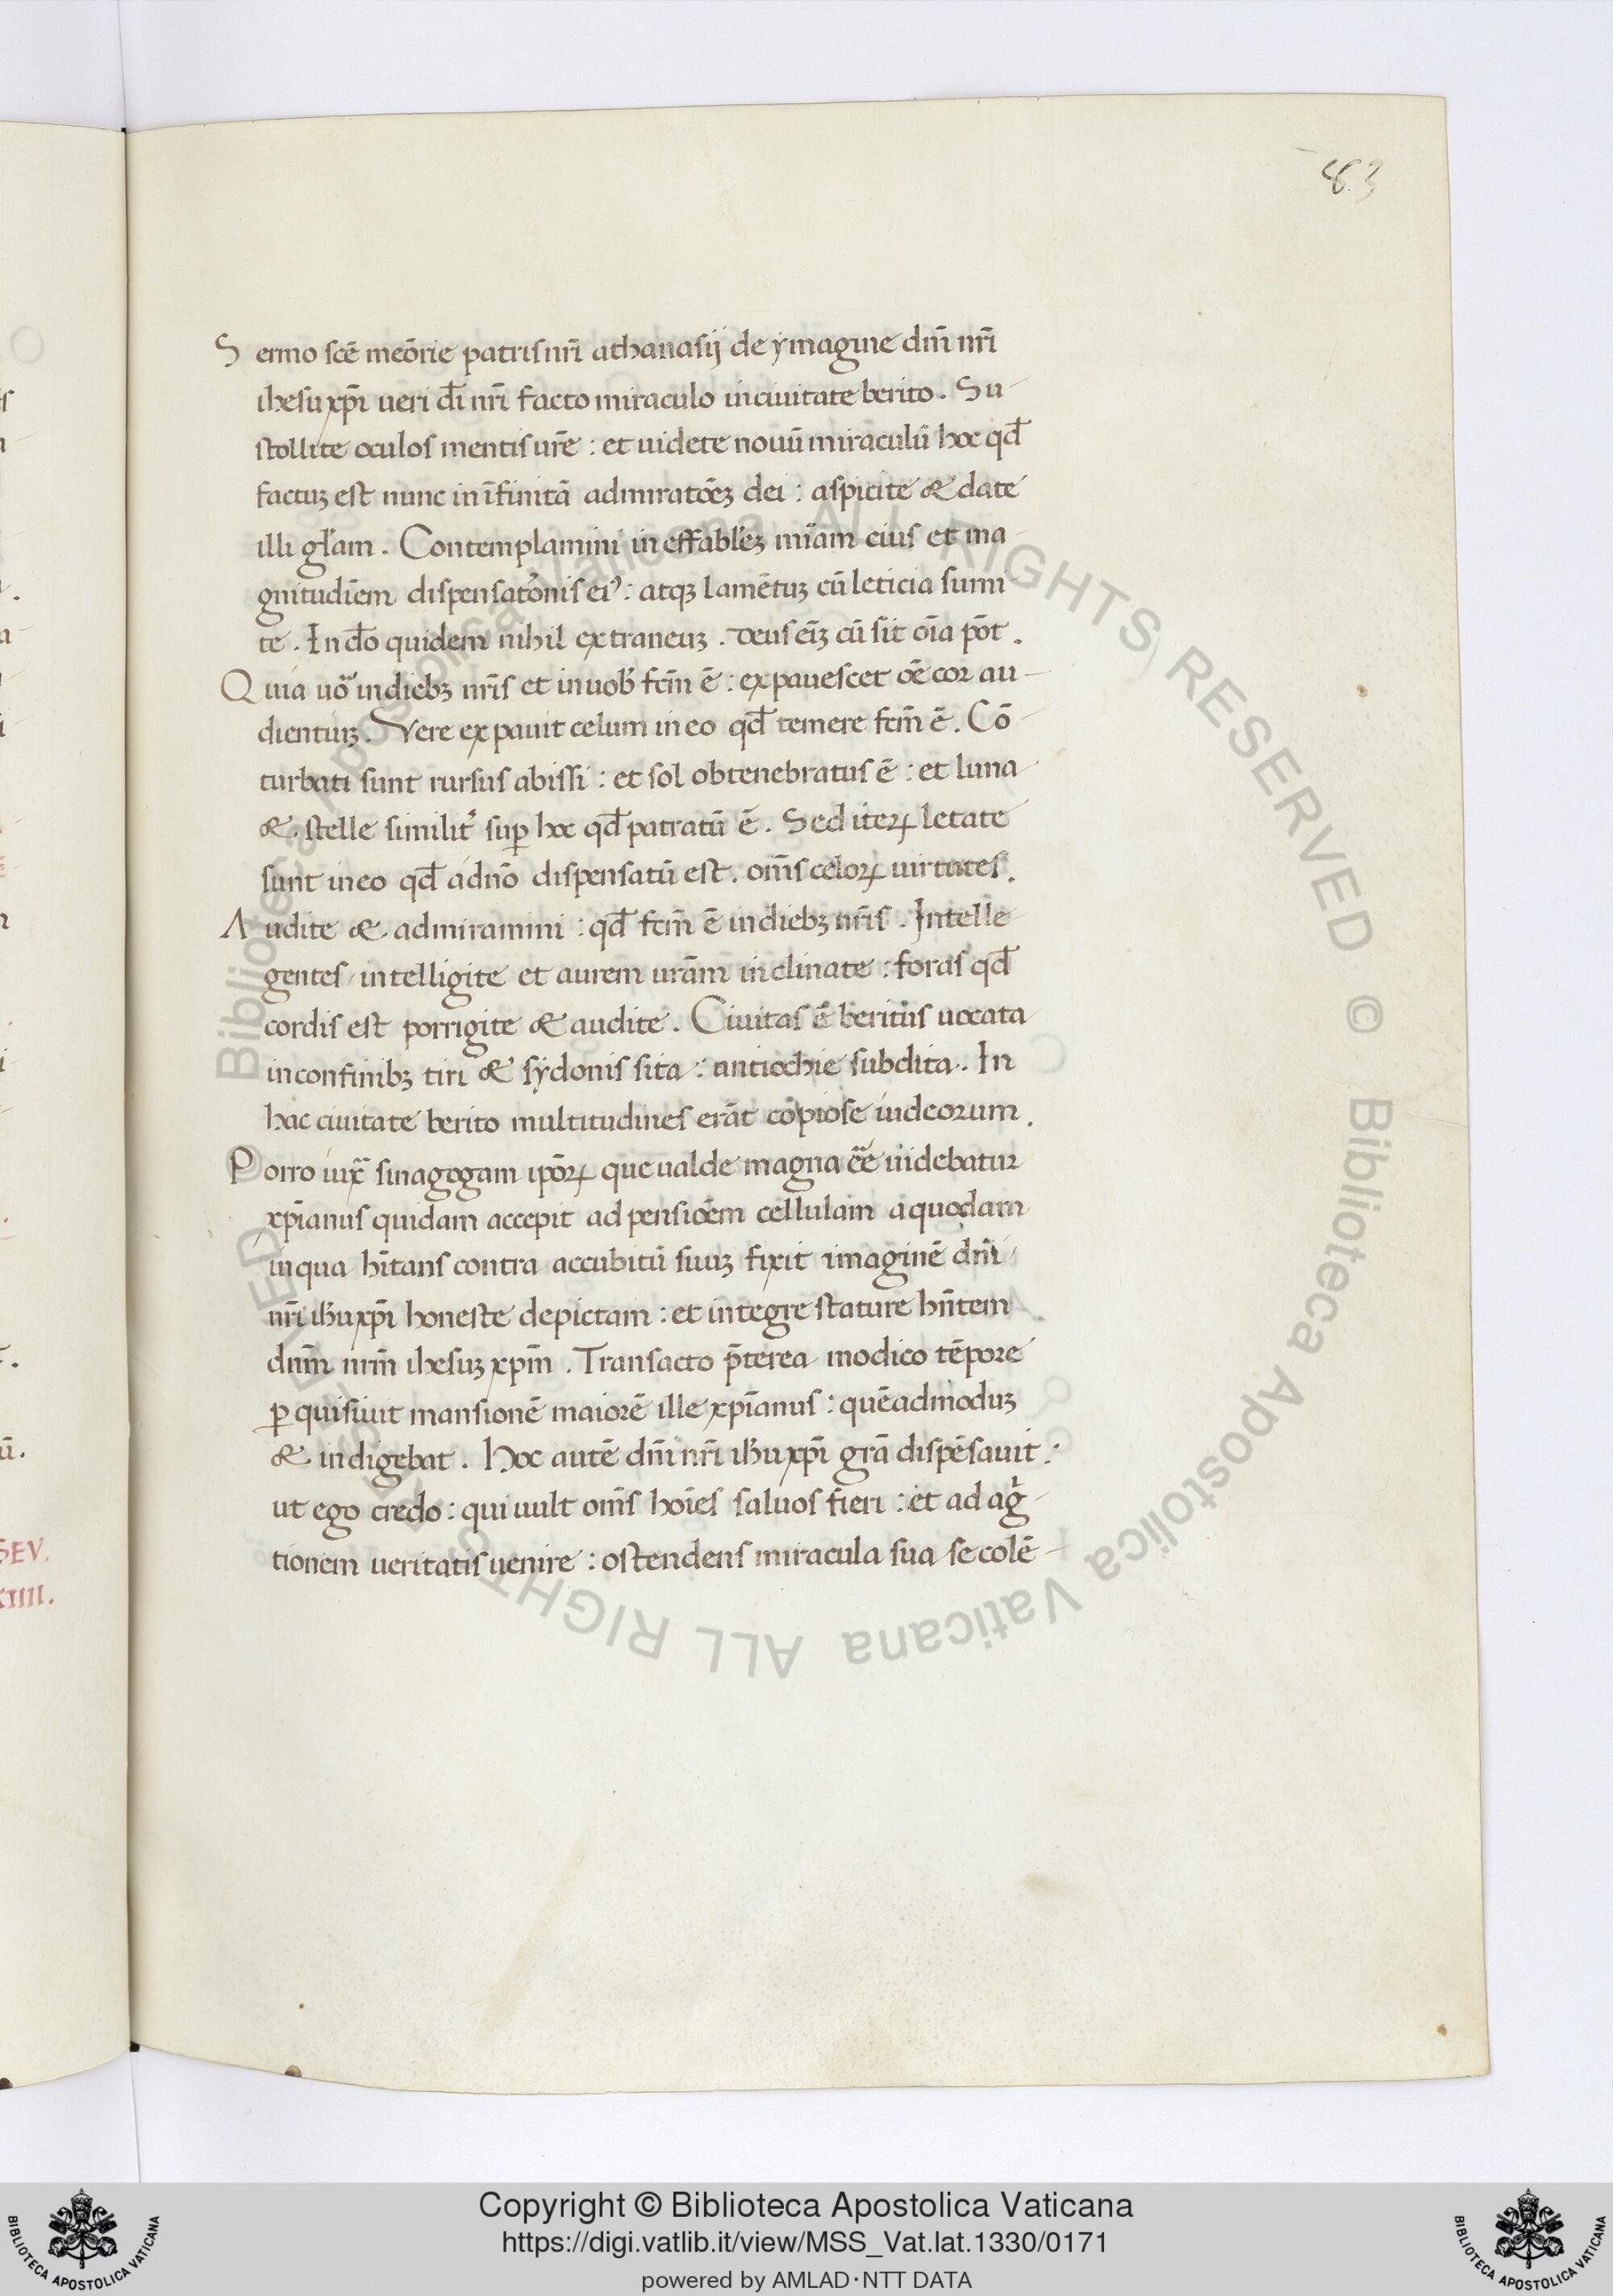 83
Sermo scē meōrie patris nr̄i athanasij de ymagine dn̄i nr̄i
ihesu xp̄i ueri dī nr̄i facto miraculo in ciuitate berito. Su-
stollite oculos mentis ur̄e: et uidete nouū miraculū hoc qd̄
factuꝫ est nunc in īfinitā admiratōeꝫ dei: aspicite & date
illi gl̄am. Contemplamini ineffabl̄eꝫ mīam eius et ma-
gnitudīem dispensatōnis eiꝰ: atqꝫ lamētuꝫ cū leticia sumi-
te. In dō quidem nihil extraneuꝫ. deus eīꝫ cū sit oīa pōt.
Quia uō in diebꝫ nr̄is et in uob̄ fcm̄ ē: expauescet oē cor au-
dientiuꝫ. Vere expauit celum in eo qd̄ temere fcm̄ ē. Cō-
turbati sunt rursus abissi: et sol obtenebratus ē: et luna
& stelle similit̓ suꝑ hoc qd̄ patratū ē. Sed iteꝝ letate
sunt in eo qd̄ a dn̄o dispensatū est. om̄s celoꝝ uirtutes.
Audite & admiramini: qd̄ fcm̄ ē in diebꝫ nr̄is. Intelle-
gentes intelligite et aurem ur̄am inclinate: foras qd̄
cordis est porrigite & audite. Ciuitas ē beritus uocata
in confinibꝫ tiri & sydonis sita: antiochie subdita. In
hac ciuitate berito multitudines erāt copiose iudeorum.
Porro iuxͣ sinagogam ip̄oꝝ que ualde magna ēe uidebatur
xp̄ianus quidam accepit ad pensiōem cellulam a quodam
in qua hītans contra accubitū suuꝫ fixit imaginē dn̄i
nr̄i ih̄u xp̄i honeste depictam: et integre stature hn̄tem
dn̄m nr̄m ihesuꝫ xp̄m. Transacto p̄terea modico tēpore
ꝑquisiuit mansionē maiorē ille xp̄ianus: quēadmoduꝫ
& indigebat. Hoc autē dn̄i nr̄i ih̄u xp̄i grā dispēsauit:
ut ego credo: qui uult om̄s hoīes saluos fieri: et ad ag̓-
tionem ueritatis uenire: ostendens miracula sua se colē-
SEV.
XIIII.
© Biblioteca Apostolica Vaticana ALL RIGHTS RESERVED
Copyright © Biblioteca Apostolica Vaticana
https://digi.vatlib.it/view/MSS_Vat.lat.1330/0171
powered by AMLAD·NTT DATA
BIBLIOTECA APOSTOLICA VATICANA
BIBLIOTECA APOSTOLICA VATICANA